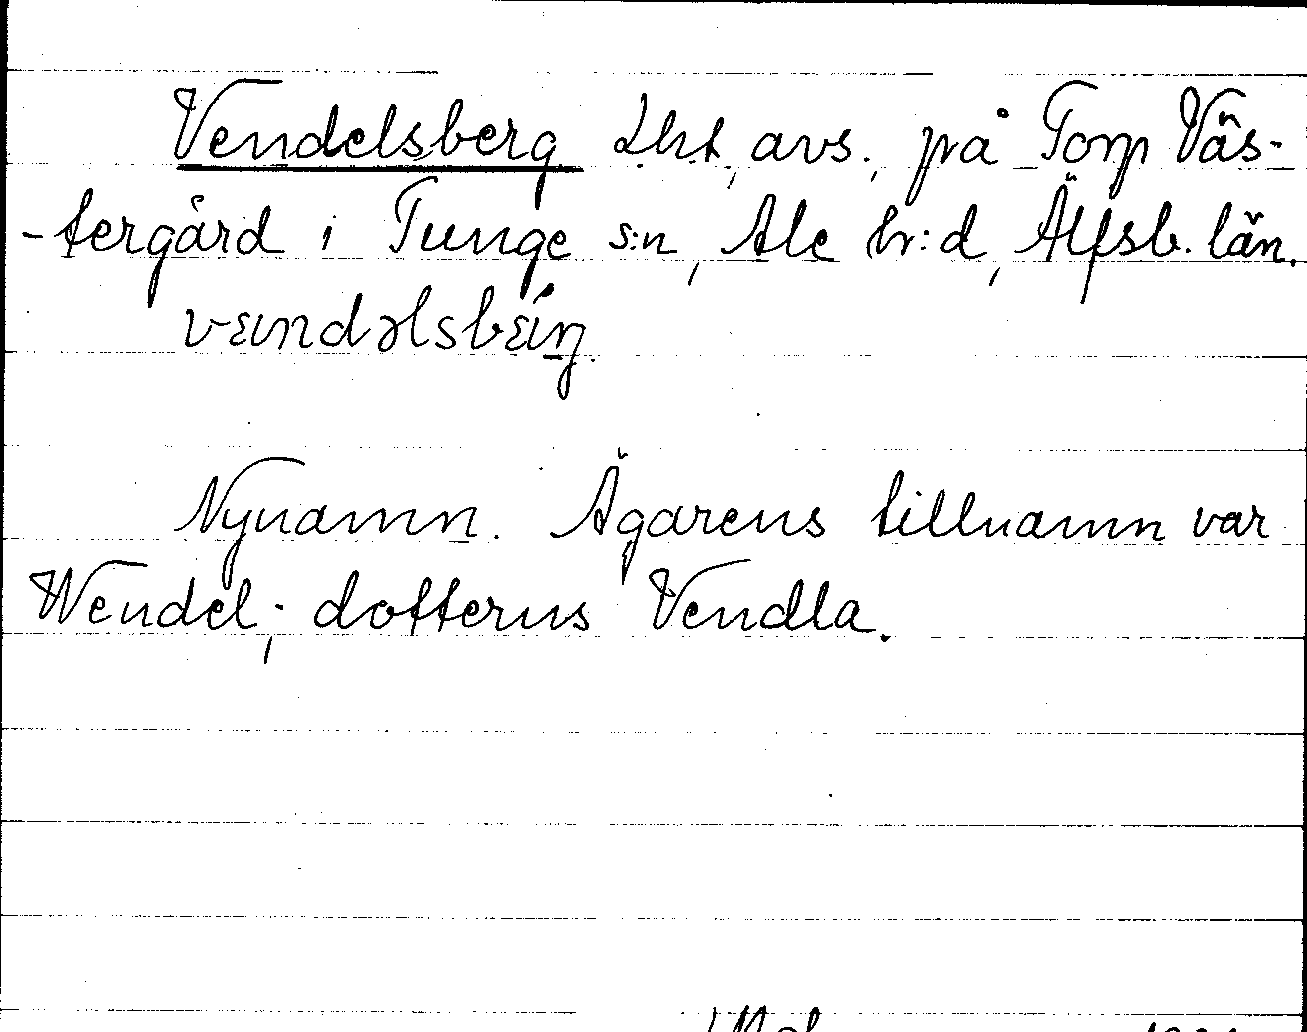 Vendelsberg Lht, avs., på Torp Väs-
-tergård i Tunge s:n, Ale hr:d, Älfsb. län.
Nynamn. Ägarens tillnamn var
Wendel; dotterns Vendla.